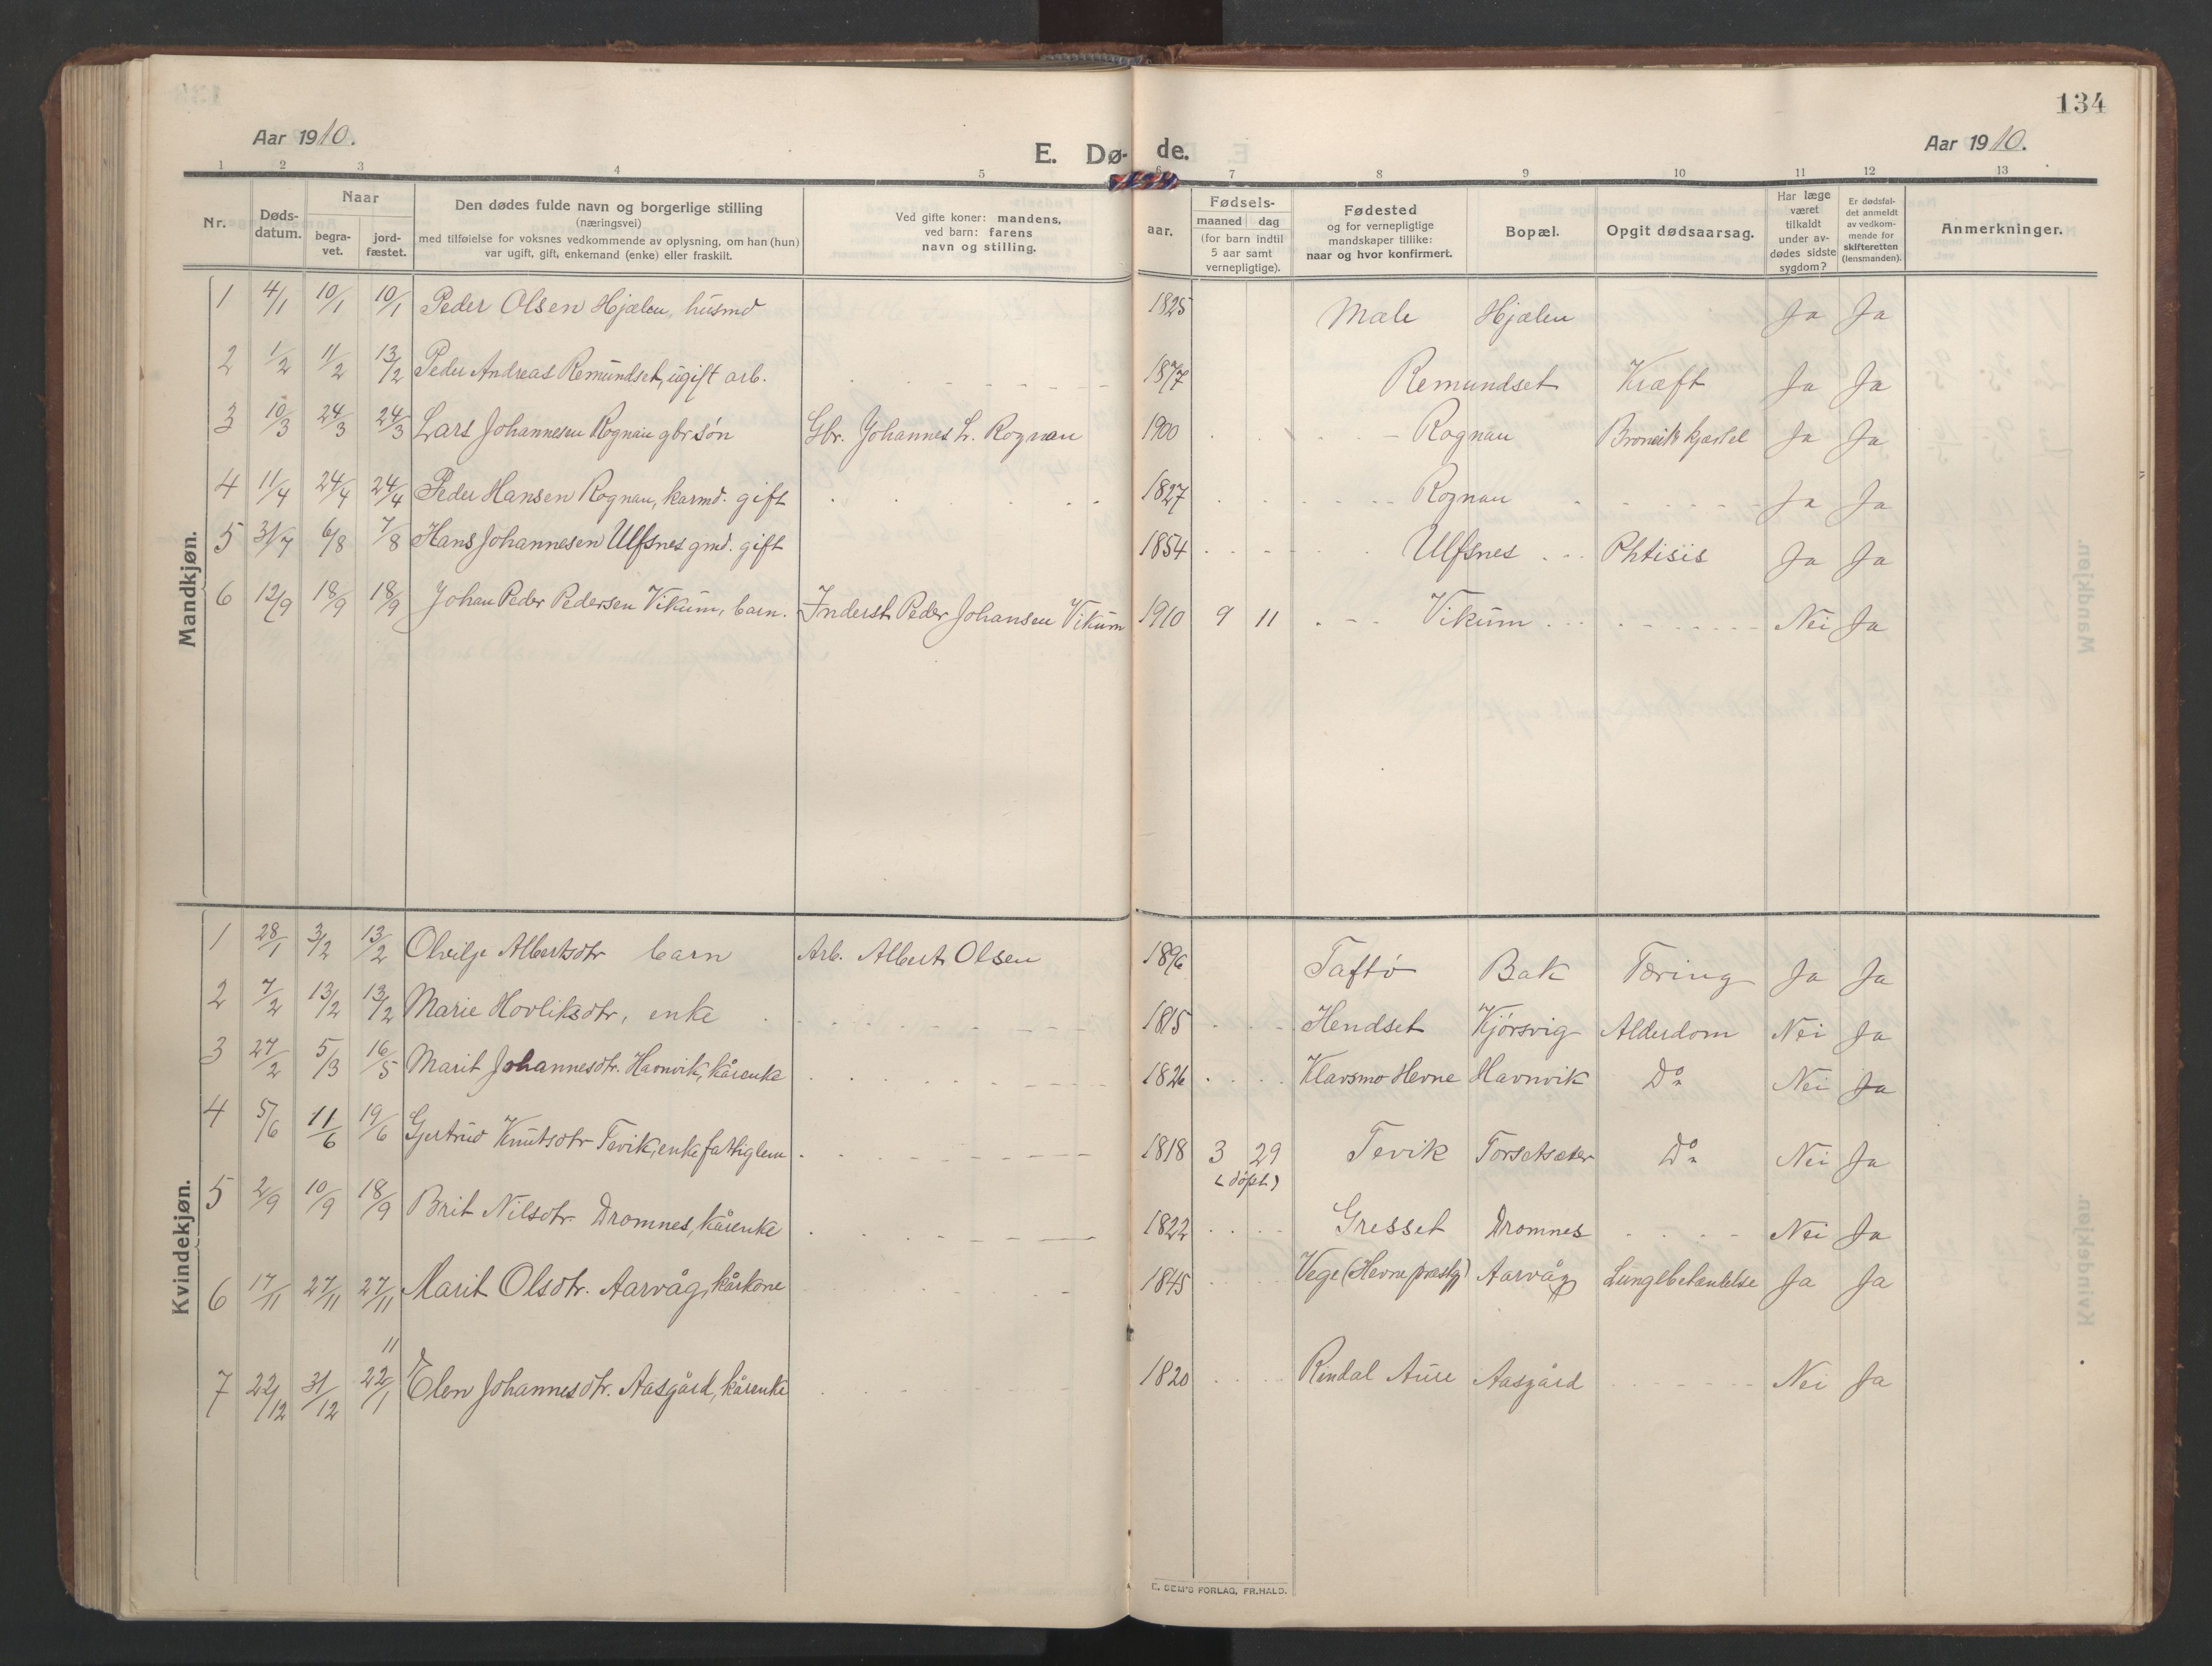 134
Aar 1910.
E. Dø- de.
Aar 1910.
1 2 3 4 5 6 7 8 9 10 11 12 13
Nr. Døds-datum. Naar begra-vet. jord-fæstet. Den dødes fulde navn og borgerlige stilling (næringsvei) med tilføielse for voksnes vedkommende av oplysning, om han (hun) var ugift, gift, enkemand (enke) eller fraskilt. Ved gifte koner: mandens, ved barn: farens navn og stilling. Fødsels- aar. maaned dag (for barn indtil 5 aar samt vernepligtige). Fødested og for vernepligtige mandskaper tillike: naar og hvor konfirmert. Bopæl. Opgit dødsaarsag. Har læge været tilkaldt under av-dødes sidste sygdom? Er dødsfal-det anmeldt av vedkom-mende for skifteretten (lensmanden). Anmerkninger.
Mandkjøn.
1 4/1 10/1 10/1 Peder Olsen Hjælen, husmd 1825 Mæle Hjælen Ja Ja
2 1/2 11/2 13/2 Peder Andreas Remundset, ugift arb. 1877 Remundset Kræft Ja Ja
3 10/3 24/3 24/3 Lars Johannesen Rognau gbr søn Gbr. Johannes L. Rognau 1900 Rognau Ja Ja
4 11/4 24/4 24/4 Peder Hansen Rognau, karmd. gift 1827 Rognau Ja Ja
5 31/7 6/8 7/8 Hans Johannesen Ulfsnes gmd. gift 1854 Ulfsnes Phtisis Ja Ja
6 12/9 18/9 18/9 Johan Peder Pedersen Vikum, barn. Inderst Peder Johansen Vikum 1910 9 11 Vikum Nei Ja
Kvindekjøn.
1 28/1 3/2 13/2 Albertsdtr barn Arb. Albert Olsen 1896 Taftø Bak Tæring Ja Ja
2 7/2 13/2 13/2 Marie Hovliksdtr, enke 1815 Hendset Kjørsvig Alderdom Nei Ja
3 27/2 5/3 16/5 Marit Johannesdtr. Havnvik, kårenke 1826 Klavsmo Hevne Havnvik Do Nei Ja
4 5/6 11/6 19/6 Gjertrud Knutsdtr Tevik, enke fattiglem 1818 3 29 Tevik Torsetsæter Do Nei Ja
(døpt)
5 2/9 10/9 18/9 Brit Nilsdtr. Dromnes, kårenke 1822 Gresset Dromnes Nei Ja
6 17/11 27/11 27/11 Marit Olsdtr. Aarvåg, kårkone 1845 Vege (Hevne præstgj) Aarvåg Lungebetændelse Ja Ja
11
7 22/12 31/12 22/1 Elen Johannesdtr. Aasgård, kårenke 1820 Rindal Aure Aasgård Nei Ja
E. SEM'S FORLAG, FR.HALD.